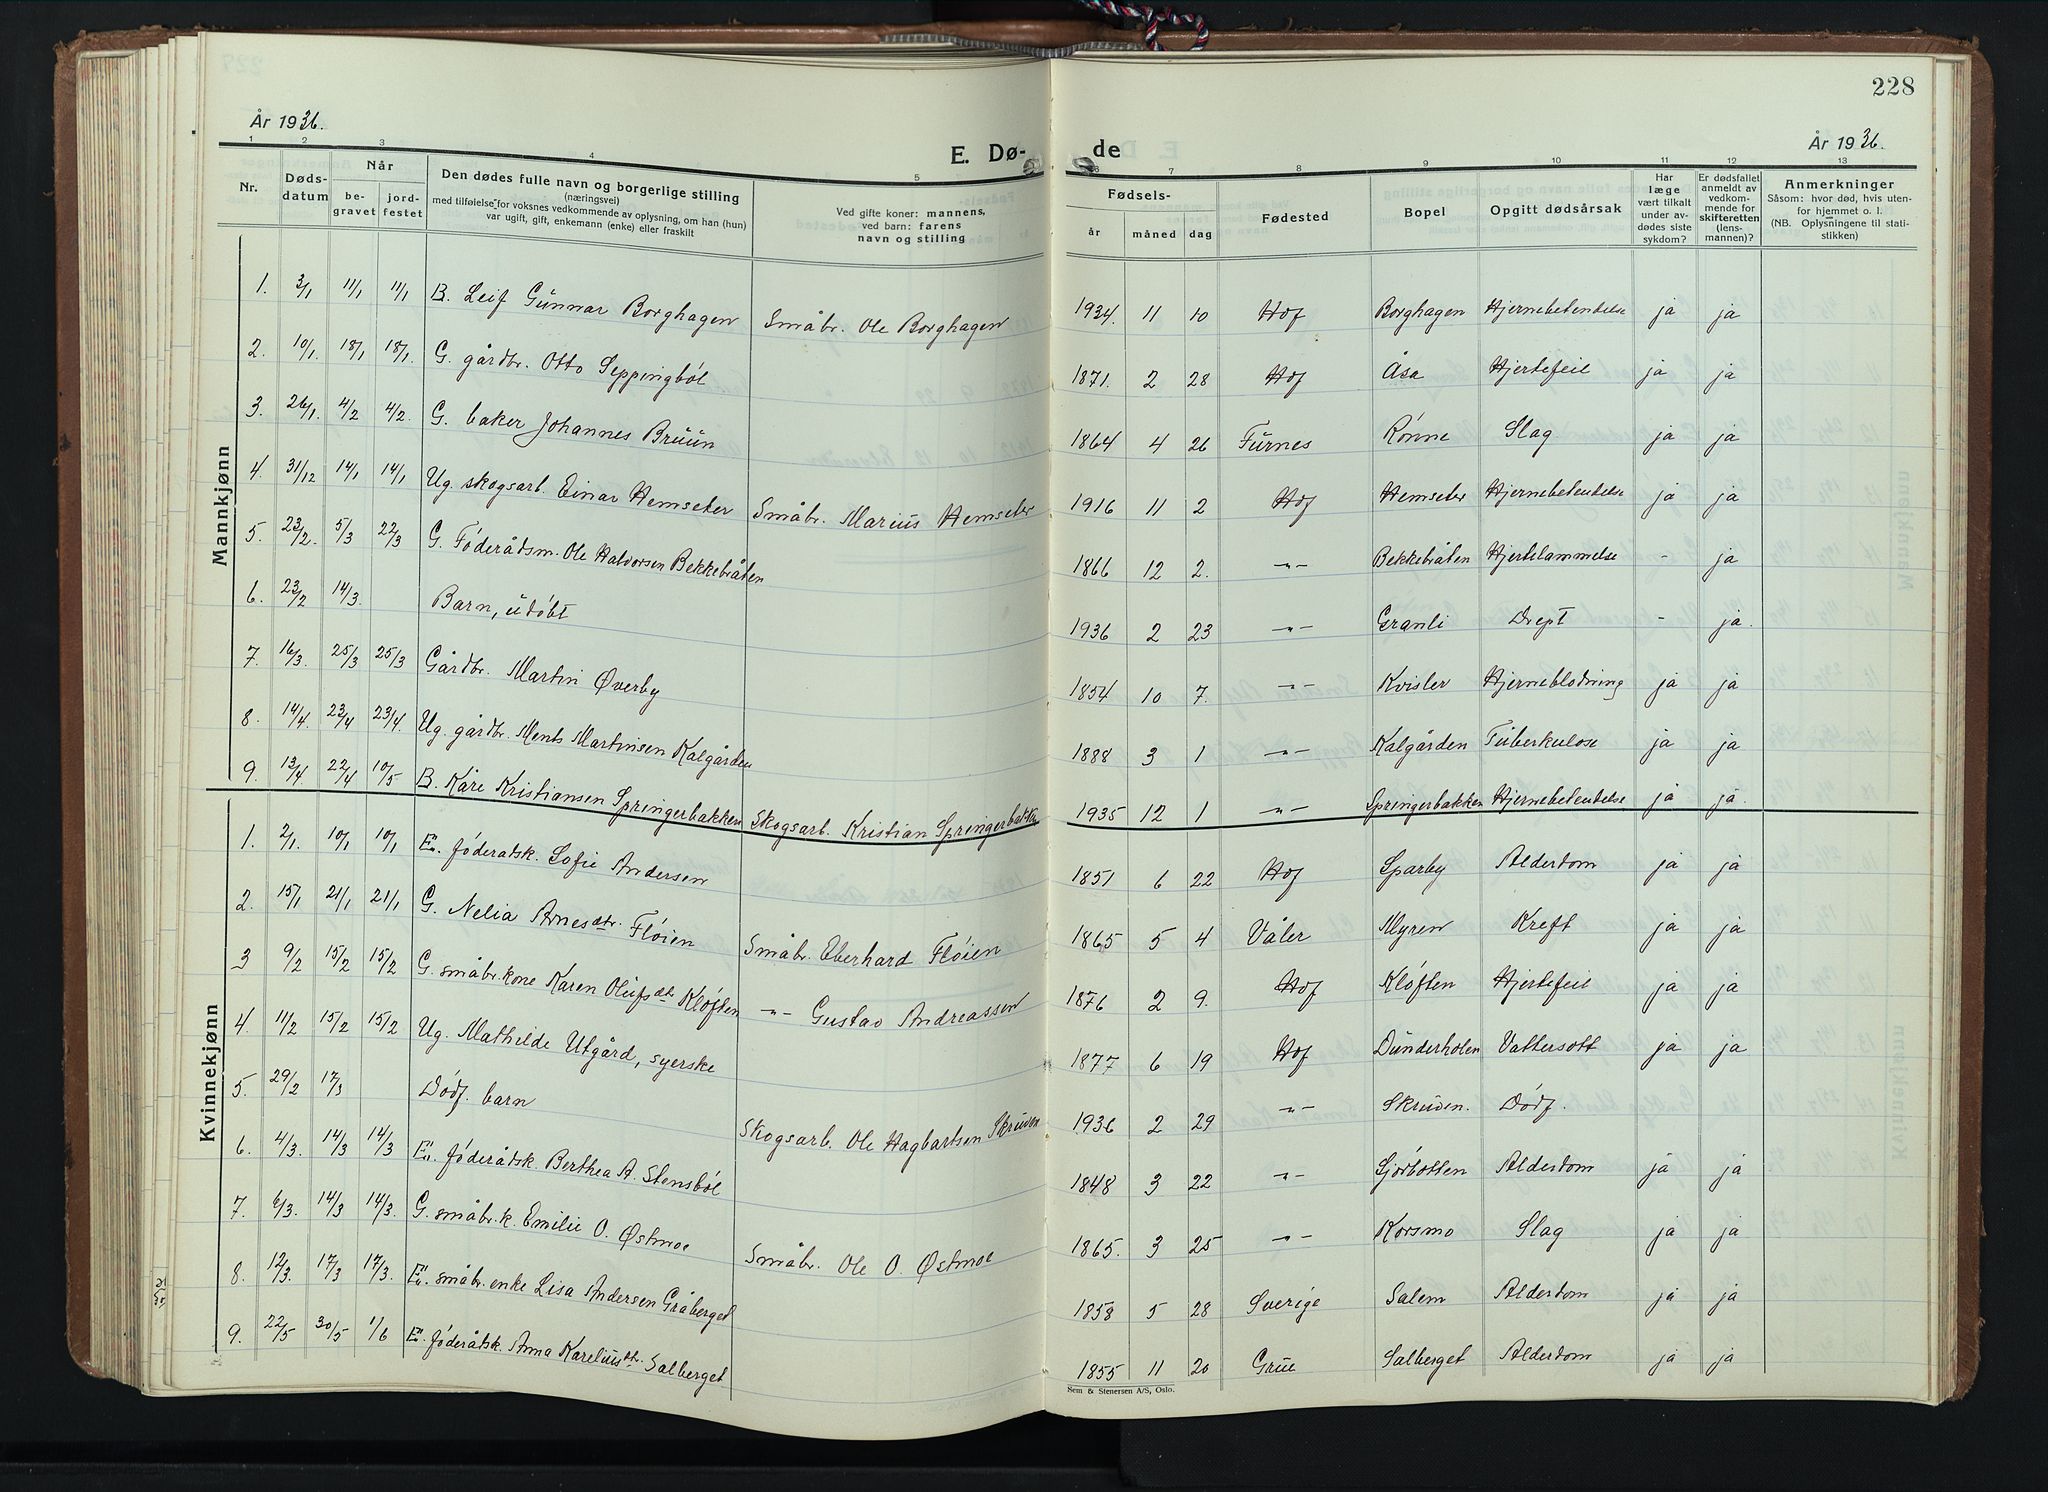 228
År 1936.
E. Dø-
de
År 1936.
1 2 3 4 5 6 7 8 9 10 11 12 13
Nr.
Døds-
datum
Når
be-
gravet
jord-
festet
Den dødes fulle navn og borgerlige stilling
(næringsvei)
med tilføielse for voksnes vedkommende av oplysning, om han (hun)
var ugift, gift, enkemann (enke) eller fraskilt
Ved gifte koner: mannens,
ved barn: farens
navn og stilling
Fødsels-
år måned dag
Fødested
Bopel
Opgitt dødsårsak
Har
læge
vært tilkalt
under av-
dødes siste
sykdom?
Er dødsfallet
anmeldt av
vedkom-
mende for
skifteretten
(lens-
mannen)?
Anmerkninger
Såsom: hvor død, hvis uten-
for hjemmet o. l.
(NB. Oplysningene til stati-
stikken)
Mannkjønn
1. 3/1 11/1 11/1 B. Leif Gunnar Borghagen Småbr. Ole Borghagen 1934. 11 10 Hof Borghagen Hjernebetendelse ja ja
2. 10/1. 18/1 18/1. G. gårdbr. Otto Seppingböl. 1871. 2 28 Hof Åsa Hjertefeil ja ja
3. 26/1. 4/2 4/2. G. baker Johannes Brüün 1864 4 26 Furnes Rönne Slag ja ja
4. 31/12 14/1 14/1 Ug. skogsarb. Einar Hemseter Småbr. Marius Hemseter 1916 11 2 Hof Hemseter Hjernebetendelse ja ja
5. 23/2. 5/3 22/3 G. Föderådsm. Ole Halvorsen Bekkebråten 1866 12 2. -"- Bekkebråten Hjertelammelse - ja
6. 23/2 14/3. Barn, udöbt 1936 2 23 -"- Granli Drept - ja.
7. 16/3. 25/3 25/3 Gårdbr. Martin Øverby 1854 10 7. -"- Kvisler Hjerneblödning ja ja
8. 14/4. 23/4 23/4. Ug. gårdbr. Ments Martinsen Kalgården 1888 3 1 -"- Kalgården Tuberkulose ja ja
9. 13/4 22/4 10/5 B. Kåre Kristiansen Springerbakken Skogsarb. Kristian Springerbakken 1935 12 1 -"- Springerbakken Hjernebetendelse ja ja.
Kvinnekjønn
1. 2/1. 10/1 10/1 E. föderåtsk. Sofie Andersen 1851 6 22 Hof Sparby Alderdom ja ja
2. 15/1 21/1 21/1 G. Nelia Arnesdtr. Flöien Småbr. Eberhard Flöien 1865 5 4 Våler Myren Kreft ja ja
3 9/2 15/2 15/2 G. småbr. kone Karen Olufsdtr Klöften -"- Gustav Andreassen 1876 2 9. Hof Klöften Hjertefeil ja ja
4. 11/2 15/2 15/2 Ug. Mathilde Utgård, syerske 1877 6 19 Hof Dunderholen Vattersott ja ja
5. 29/2 17/3 Dödf. barn Skogsarb. Ole Hagbartsen Skruven 1936 2 29 -"- Skruven. Dödf.
6. 4/3. 14/3 14/3 E. föderåtsk. Berthea A. Stensböl 1848 3 22 -"- Sjörbotten Alderdom ja ja
7. 6/3. 14/3 14/3. G. småbr. k. Emilie O. Østmoe Småbr. Ole O. Østmoe 1865. 3 25 -"- Korsmo Slag ja ja
8. 12/3. 17/3 17/3. E. småbr. enke Lisa Andersen Gråberget 1858 5 28 Sverige Salem Alderdom ja ja
9. 22/5 30/5 1/6 E. föderåtsk. Anna Kareliusdtr. Salberget 1855 11 20 Grue Salberget Alderdom ja ja
Sem & Stenersen A/S, Oslo.